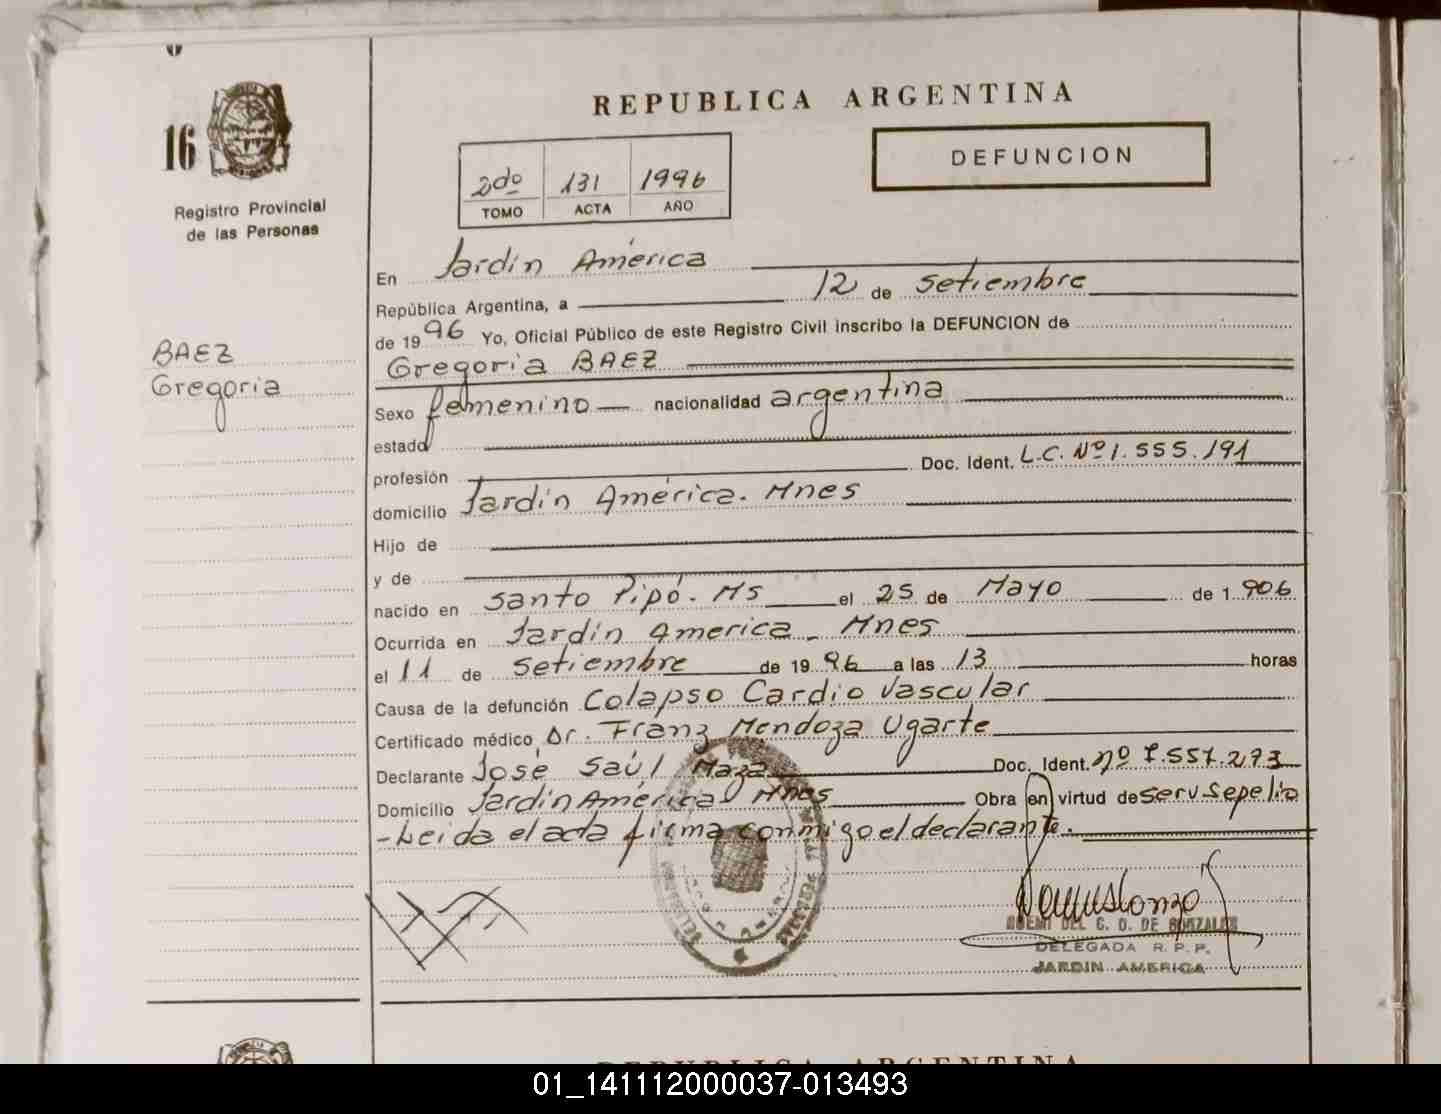 16
Registro Provincial
de las Personas
BAEZ
Gregoria
REPUBLICA ARGENTINA
2do 131 1996
TOMO ACTA AÑO
DEFUNCION
En Jardín América
República Argentina, a 12 de Setiembre
de 1996 Yo, Oficial Público de este Registro Civil inscribo la DEFUNCION de
Gregoria BAEZ
Sexo femenino nacionalidad argentina
estado
profesión Doc. Ident. L.C. Nº 1.555.191
domicilio Jardín América. Mnes
Hijo de
y de
nacido en Santo Pipó. Ms el 25 de Mayo de 1906
Ocurrida en Jardín America - Mnes
el 11 de Setiembre de 1996 a las 13 horas
Causa de la defunción Colapso Cardio Vascular
Certificado médico Dr. Franz Mendoza Ugarte
Declarante José Saúl Maza Doc. Ident. nº 7.557.273
Domicilio Jardín América Mnes Obra en virtud de serv Sepelio
-Leida el acta firma conmigo el declarante.
DE GONZALEZ
DELEGADA R. P. P.
JARDIN AMERICA
REPUBLICA ARGENTINA
01_141112000037-013493